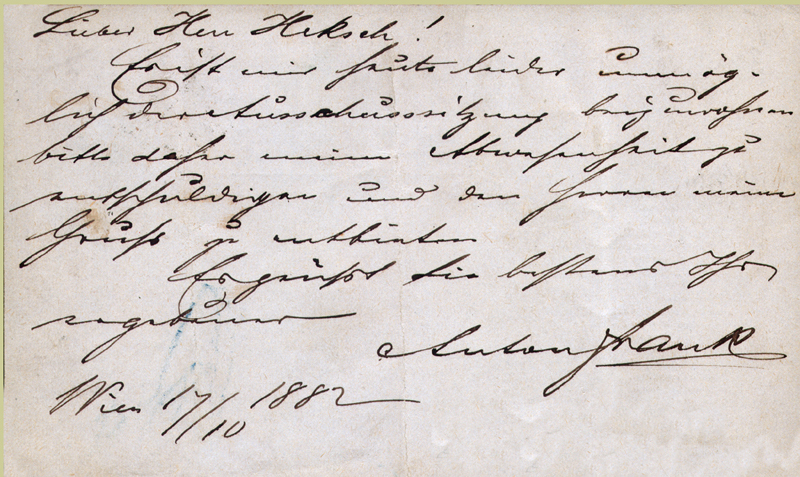 Lieber Herr Heksch!
Es ist mir heute leider unmög-
lich der Ausschusssitzung beizuwohnen
bitte daher meine Abwesenheit zu
entschuldigen und den Herren meinen
Gruß zu entbieten
Es grüßt Sie bestens Ihr
ergebener
Anton Frank
Wien 17/10 1882